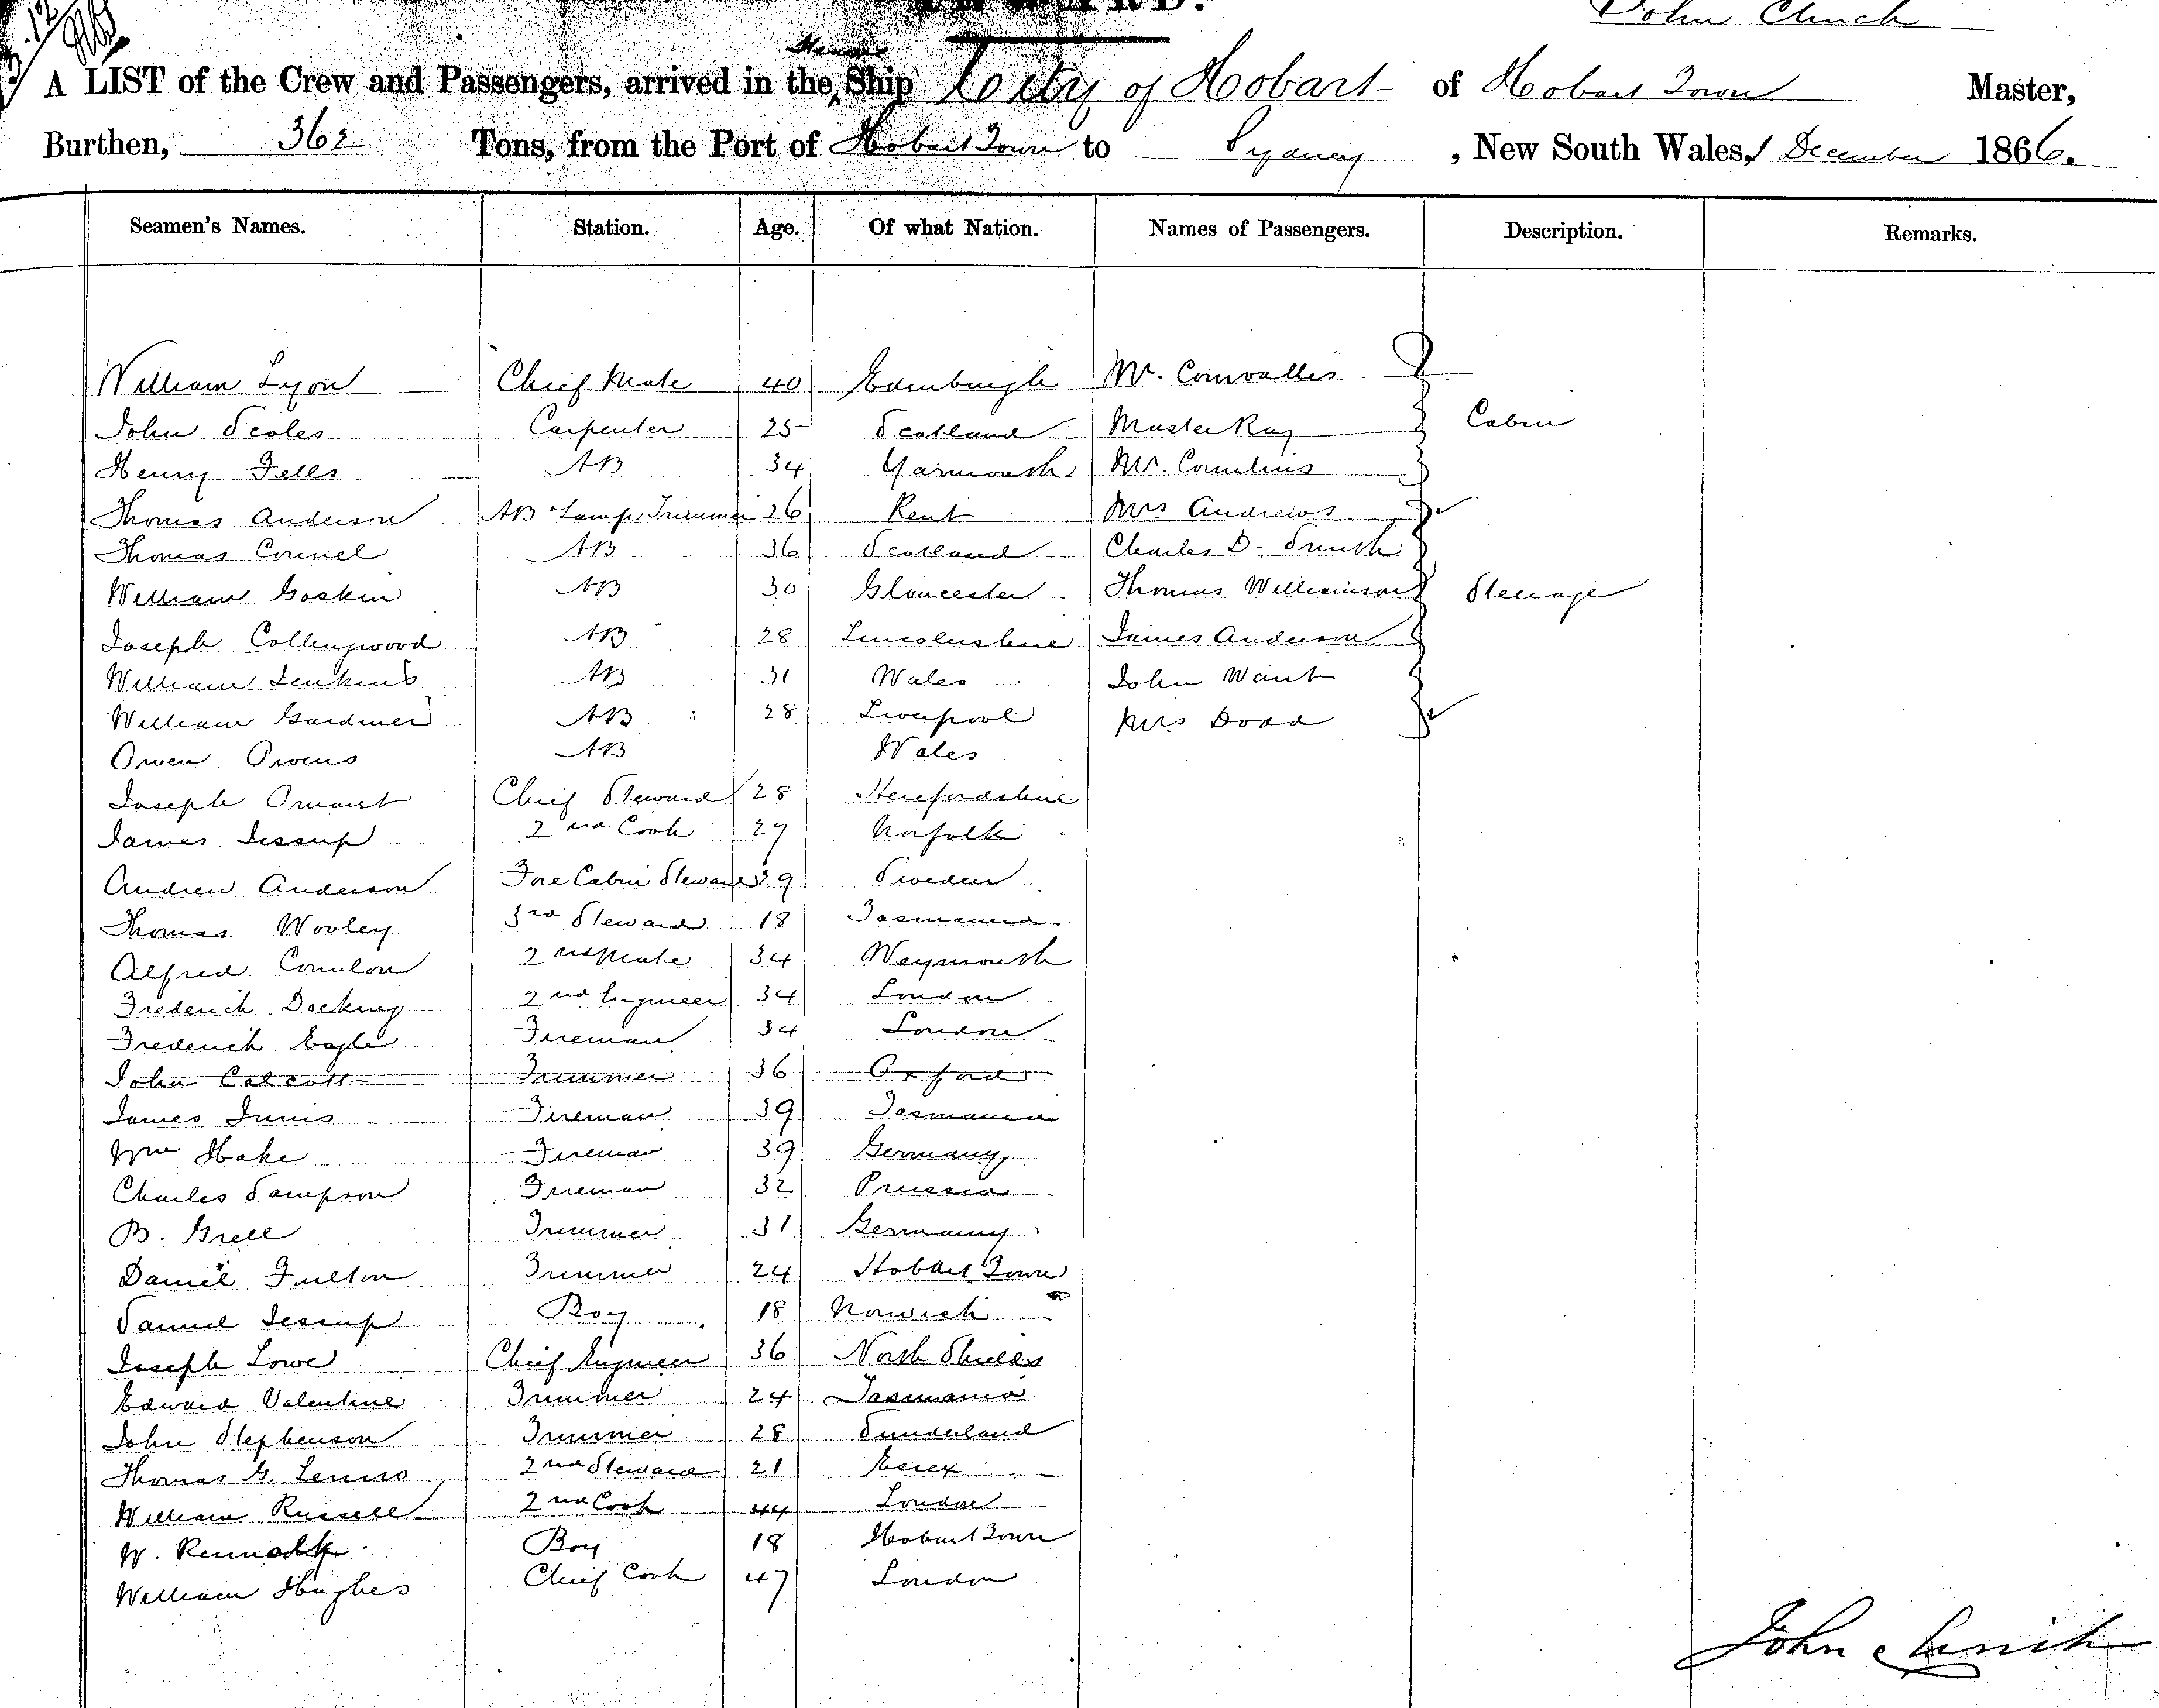 John Clinch
A LIST of the Crew and Passengers, arrived in the Ship City of Hobart of Hobart Town Master,
Burthen, 362 Tons, from the Port of Hobart Town to Sydney, New South Wales, 1 December 1866.
Seamen's Names. Station. Age. Of what Nation. Names of Passengers. Description. Remarks.
William Lyon Chief Mate 40 Edinburgh Mr. Cornvallis
John Scoles Carpenter 25 Scotland Master Ray Cabin
Henry Fells AB 34 Yarmouth Mr. Cornelius
Thomas Anderson AB Lamp Trimmer 26 Kent Mrs Andrews
Thomas AB 36 Scotland Charles D. Smith
William Goskin AB 30 Gloucester Thomas Williamson Steerage
Joseph Collingwood AB 28 Lincolnshire James Anderson
William Jenkins AB 31 Wales John Want
William Gardiner AB 28 Liverpool Mrs Dodd
Owen Owens AB Wales
Joseph Omant Chief Steward 28 Herefordshire
James Jessup 2nd Cook 27 Norfolk
Andrew Anderson Fore Cabin Steward 29 Sweden
Thomas Wooley 3rd Steward 18 Tasmania
Alfred 2nd Mate 34 Weymouth
Frederick Docking 2nd Engineer 34 London
Frederick Eagle Fireman 34 London
John Calcott Trimmer 36 Oxford
James Innis Fireman 39 Tasmania
Wm Hake Fireman 39 Germany
Charles Sampson Fireman 32 Prussia
B. Grell Trimmer 31 Germany
Daniel Fulton Trimmer 24 Hobart Town
Samuel Jessup Boy 18 Norwich
Joseph Lowe Chief Engineer 36 North Shields
Edward Valentine Trimmer 24 Tasmania
John Stephenson Trimmer 28 Sunderland
Thomas G. 2nd Steward 21 Essex
William Russell 2nd Cook 44 London
W. Boy 18 Hobart Town
William Hughes Chief Cook 47 London
John Clinch